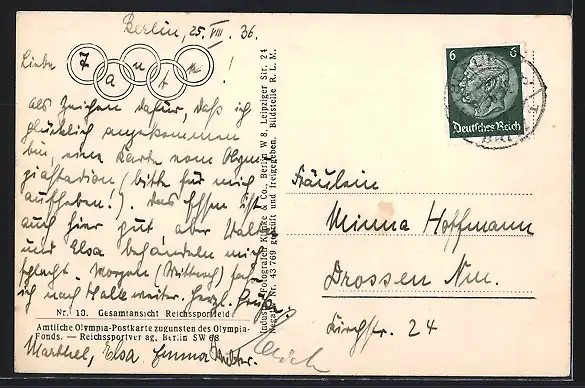 Berlin, 25. VIII. 36.
Liebe Tante !
Als Zeichen dafür, daß ich
glücklich angekommen
bin, eine Karte vom Olym-
piastadion (bitte für mich
aufheben!). Das Essen ist
auch hier gut, aber
und Elsa behandeln mich
schlecht. Morgen (Mittwoch)
ich nach Halle weiter. Herzl. Grüße
Nr. 10. Gesamtansicht Reichssportfeld
Amtliche Olympia-Postkarte zugunsten des Olympia-
Fonds. — Reichssportverlag, Berlin SW 68
Elsa, Emma
Industrie-Fotografen Klinke & Co., Berlin W 8, Leipziger Str. 24
Negativ Nr. 43 769 geprüft und freigegeben. Bildstelle R. L. M.
6 6
Deutsches Reich
Fräulein
Minna Hoffmann
Drossen Nm.
Kirchstr. 24